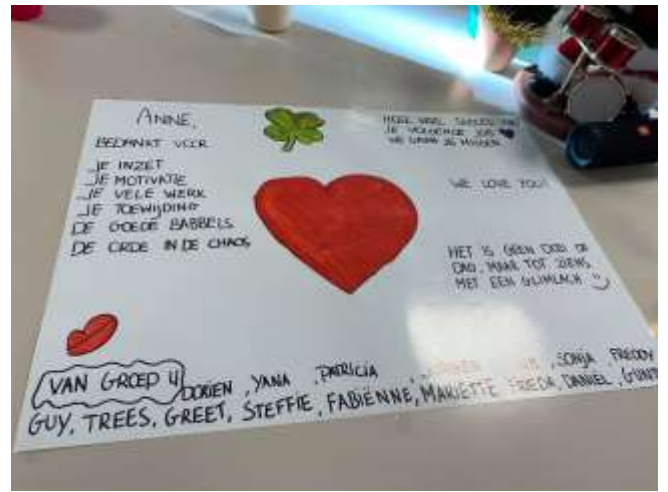 ANNE,
BEDANKT VOOR
JE INZET
JE MOTIVATIE
JE VELE WERK
JE TOEWIJDING
DE GOEDE BABBELS
DE ORDE IN DE CHAOS
HEEL VEEL SUCCES
JE VOLGENDE JOB
WE GAAN JE MISSEN
WE LOVE YOU!
HET IS GEEN DOEI OF
DAG, MAAR TOT ZIENS
MET EEN GLIMLACH
VAN GROEP 4
DORIEN, YANA, PATRICIA, SONJA, FREDDY
GUY, TREES, GREET, STEFFIE, FABIËNNE, MARIETTE, FRIEDA, DANIEL,